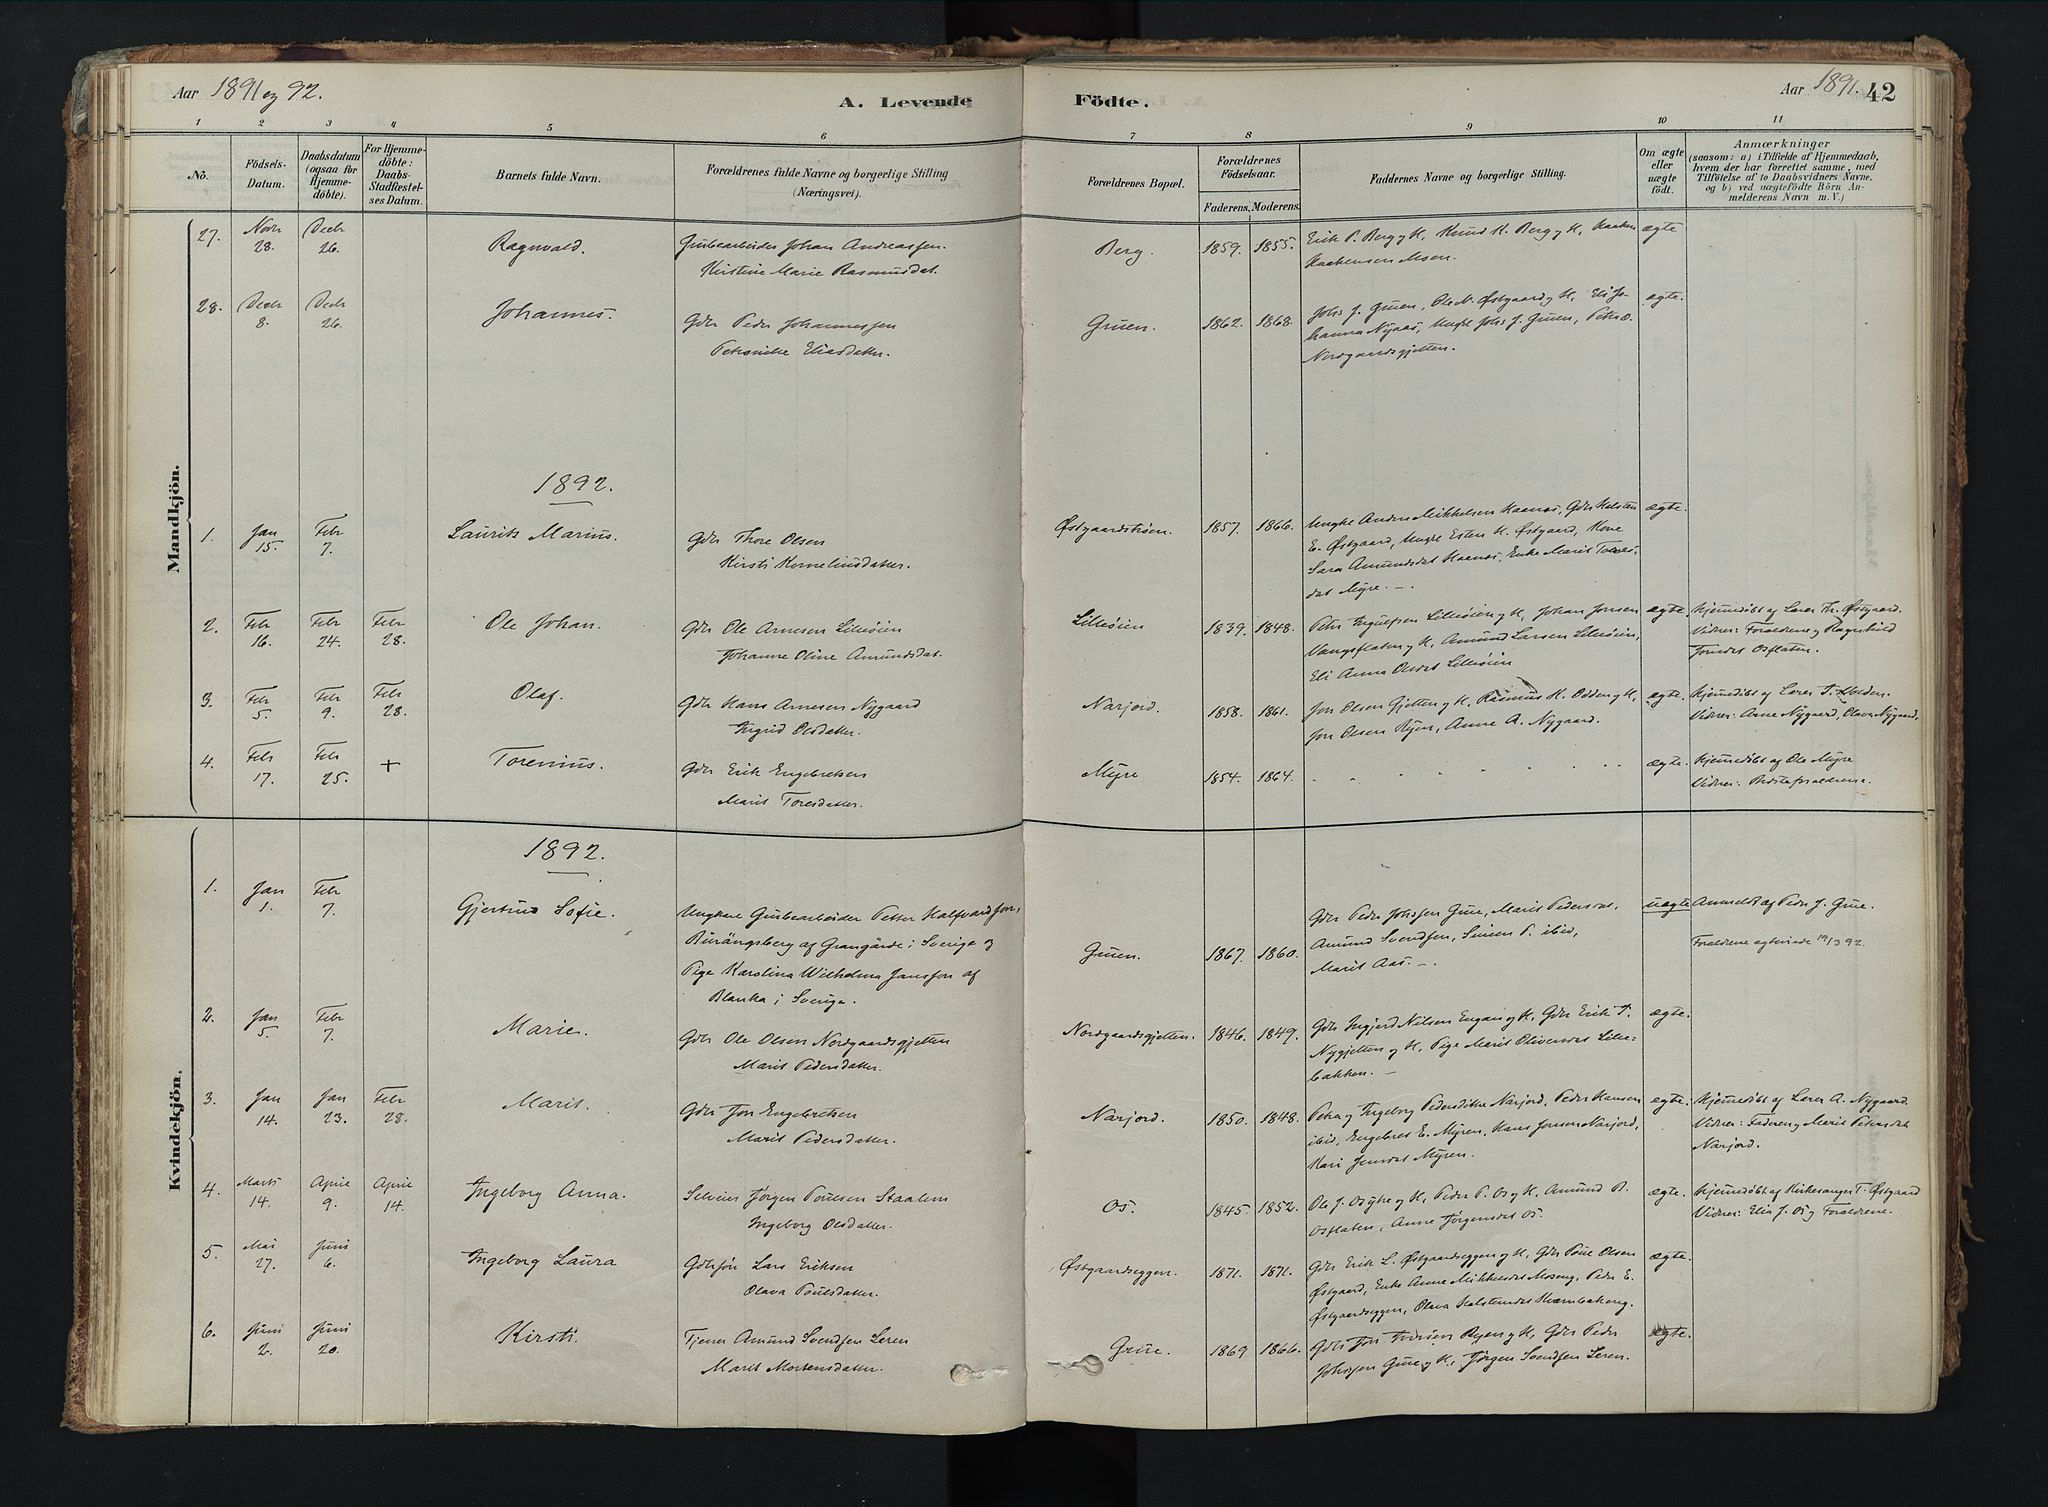 Aar 1891 og 92.
A. Levende Födte.
Aar 1891. 42
1 2 3 4 5 6 7 8 9 10 11
No.
Födsels-Datum.
Daabsdatum (ogsaa for Hjemme-döbte).
For Hjemme-döbte: Daabs-Stadfæstel-ses Datum.
Barnets fulde Navn.
Forældrenes fulde Navne og borgerlige Stilling (Næringsvei).
Forældrenes Bopæl.
Forældrenes Födselsaar.
Faderens. Moderens.
Faddernes Navne og borgerlige Stilling.
Om ægte eller uægte födt.
Anmærkninger
(saasom: a) i Tilfælde af Hjemmedaab,
hvem der har forrettet samme, med
Tilföielse af to Daabsvidners Navne,
og b) ved uægtefödte Börn An-
melderens Navn m. V.)
Mandkjön.
27. Novbr 28. Decbr 26. Ragnvald. Grubearbeider Johan Andreassen
Kirstine Marie Rasmusdat. Berg. 1859. 1855. Erik P. Berg og H, Knud H. Berg og H, Haaken
Haakensen Moen. ægte
28. Decbr 8. Decbr 26. Johannes. Gdbr Peder Johannessen
Petronike Eliasdatter. Gruen. 1862. 1868. Johs J. Gruen, Ole N. Østgaard og H, Eli Jo-
hanna Nyaas, Ungk Johs J. Gruen, Peter O.
Nordgaardsgjetten. ægte.
1892.
1. Jan 15. Febr 7. Laurits Marius. Gdbr Thore Olsen
Kirsti Korneliusdatter. Østgaardstrøen. 1857. 1866. Ungke Anders Mikkelsen Haanæs, Gdbr Halsten
E. Østgaard, Ungke Esten H. Østgaard, Kone
Sara Amundsdat Haanæs, Enke Marit Tores-
dat Myre. ægte.
2. Feb 16. Febr 24. Feb 28. Ole Johan. Gdbr Ole Arnesen Lilleøien
Johanne Oline Amundsdat. Lilleøien 1839. 1848. Peter Ingulfsen Lilleøien og H, Johan Jonsen
Vangsflaten og H, Amund Larsen Lilleøien,
Eli Anna Olsdat Lilleøien ægte Hjemmedøbt af Lærer Th. Østgaard.
Vidner: Forældrene og Ragnhild
Jonsdat Osflaten.
3. Feb 5. Feb 9. Feb 28. Olaf. Gdbr Hans Arnesen Nygaard
Ingrid Olsdatter. Narjord. 1858. 1861. Jon Olsen Gjetten og H, Rasmus H. Odden og H,
Jon Olsen Ryen, Anne A. Nygaard. ægte. Hjemmedøbt af Lærer T. Holden.
Vidner: Arne Nygaard, Olava Nygaard.
4. Feb 17. Feb 25. + Torenius. Gdbr Erik Engebretsen
Marit Toresdatter. Myre 1854. 1864. ægte. Hjemmedøbt af Ole Myre
Vidner: Bedsteforældrene.
Kvindekjön.
1892.
1. Jan 1. Feb 7. Gjertrud Sofie. Ungkarl Grubearbeider Petter Halfvardsson,
Burängsberg af Grangärde i Sverige og
Pige Karolina Wilhelmina Jansson af
Blanka i Sverige. Gruen. 1867. 1860. Gdbr Peder Johssen Grue, Marit Pedersdat.
Amund Svendsen, Simen P. ibid,
Marit Aas. uægte Anmeldt af Peder J. Grue.
Forældrene ægteviede 19/3 92.
2. Jan 5. Feb 7. Marie. Gdbr Ole Olsen Nordgaardsgjetten
Marit Pedersdatter. Nordgaardsgjetten. 1846. 1849. Gdbr Ingjerd Nilsen Engan og H, Gdbr Erik T.
Nygjetten og H, Pige Marit Oliversdat Lille-
bakken. ægte.
3. Jan 14. Jan 23. Feb 28. Marit. Gdbr Jon Engebretsen
Marit Pedersdatter. Narjord. 1850. 1848. Petra og Ingeborg Pedersdøtre Narjord, Peder Hansen
ibid, Engebret E. Myren, Hans Jonsen Narjord,
Kari Jonsdat Myren. ægte. Hjemmedøbt af Lærer A. Nygaard.
Vidner: Faderen og Marit Pedersdat
Narjord.
4. Marts 14. April 9. April 14. Ingeborg Anna. Selveier Jørgen Poulsen Staalem
Ingeborg Olsdatter. Os. 1845. 1852. Ole J. Osgthe og H, Peder P. Os og H, Amund B.
Osflaten, Anne Jørgensdat Os. ægte. Hjemmedøbt af Kirkesanger T. Østgaard
Vidner: Elia J. Os og Forældrene.
5. Mai 27. Juni 6. Ingeborg Laura Gdbrsøn Lars Eriksen
Olava Poulsdatter. Østgaardseggen. 1871. 1871. Gdbr Erik L. Østgaardseggen og H, Gdbr Poul Olsen
Østgaard, Enke Anne Mikkelsdat Moseng, Peder E.
Østgaardseggen, Olava Halstensdat ægte.
6. Juni 2. Juni 20. Kirsti. Tjener Amund Svendsen Leren
Marit Mortensdatter. Grue. 1869 1866. Gdbr Jon Iversen Ryen og H, Gdbr Peder
Johssen Grue og H, Jørgen Svendsen Leren. ægte.